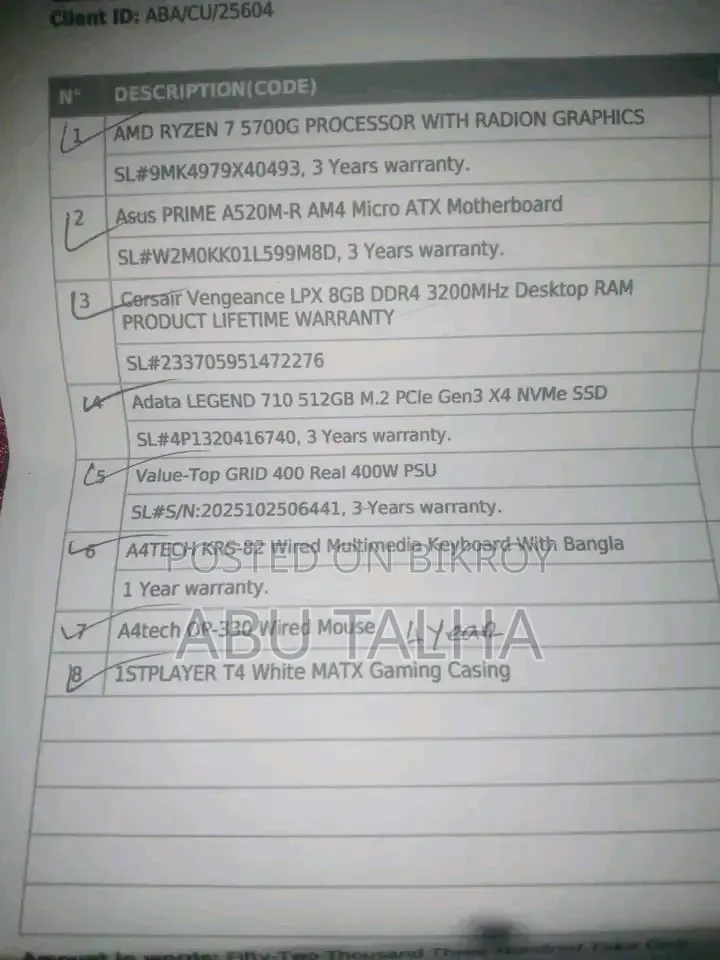 Client ID: ABA/CU/25604
N° DESCRIPTION(CODE)
1 AMD RYZEN 7 5700G PROCESSOR WITH RADION GRAPHICS
SL#9MK4979X40493, 3 Years warranty.
2 Asus PRIME A520M-R AM4 Micro ATX Motherboard
SL#W2M0KK01L599M8D, 3 Years warranty.
3 Corsair Vengeance LPX 8GB DDR4 3200MHz Desktop RAM
PRODUCT LIFETIME WARRANTY
SL#233705951472276
4 Adata LEGEND 710 512GB M.2 PCIe Gen3 X4 NVMe SSD
SL#4P1320416740, 3 Years warranty.
5 Value-Top GRID 400 Real 400W PSU
SL#S/N:2025102506441, 3-Years warranty.
6 A4TECH KRS-82 Wired Multimedia Keyboard With Bangla
POSTED ON BIKROY
1 Year warranty.
7 A4tech OP-330 Wired Mouse 1 Year
ABU TALHA
8 1STPLAYER T4 White MATX Gaming Casing
Amount in words: Fifty-Two Thousand Three Hundred Taka